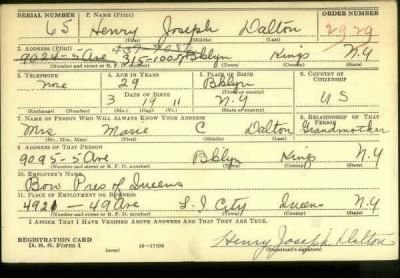 SERIAL NUMBER 1. NAME (Print) ORDER NUMBER
65 Henry Joseph Dalton 2929
(First) (Middle) (Last)
2. ADDRESS (Print)
9024-5 Ave Bklyn Kings N.Y
(Number and street or R. F. D. number) (Town) (County) (State)
3. TELEPHONE 4. AGE IN YEARS 5. PLACE OF BIRTH 6. COUNTRY OF CITIZENSHIP
none 29 Bklyn
DATE OF BIRTH (Town or county)
3 19 11 N.Y U S
(Exchange) (Number) (Mo.) (Day) (Yr.) (State or country)
7. NAME OF PERSON WHO WILL ALWAYS KNOW YOUR ADDRESS 8. RELATIONSHIP OF THAT PERSON
Mrs Marie C Dalton Grandmother
(Mr., Mrs., Miss) (First) (Middle) (Last)
9. ADDRESS OF THAT PERSON
9095-5 Ave Bklyn Kings N.Y
(Number and street or R. F. D. number) (Town) (County) (State)
10. EMPLOYER'S NAME
Boro Pres of Queens
11. PLACE OF EMPLOYMENT OR BUSINESS
4921-49 Ave L. I. City Queens N.Y
(Number and street or R. F. D. number) (Town) (County) (State)
I AFFIRM THAT I HAVE VERIFIED ABOVE ANSWERS AND THAT THEY ARE TRUE.
REGISTRATION CARD
D. S. S. Form 1 (over) 16-17105 Henry Joseph Dalton
(Registrant's signature)